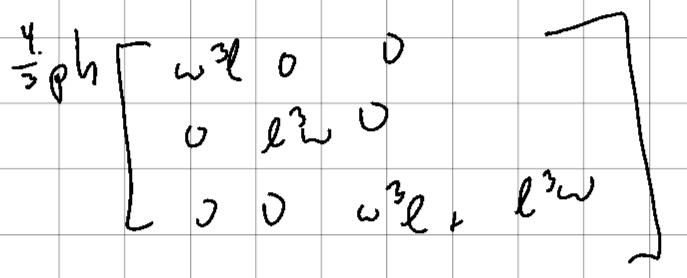 4/3 ρh [ w³l 0 0
0 l³w 0
0 0 w³l + l³w ]